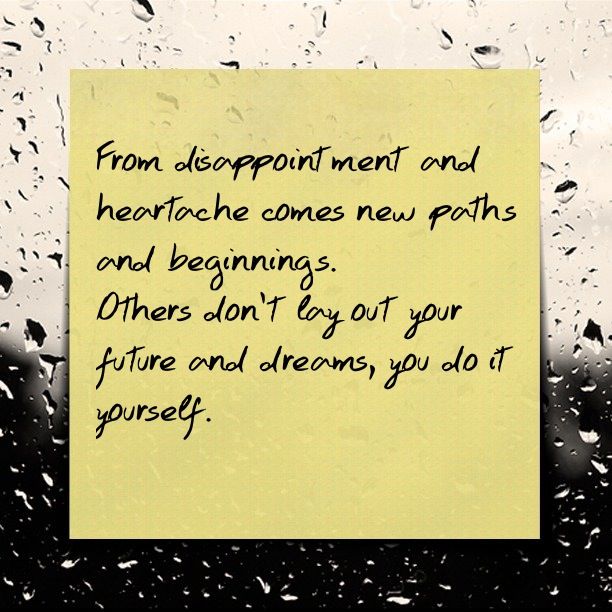 From disappointment and
heartache comes new paths
and beginnings.
Others don't lay out your
future and dreams, you do it
yourself.